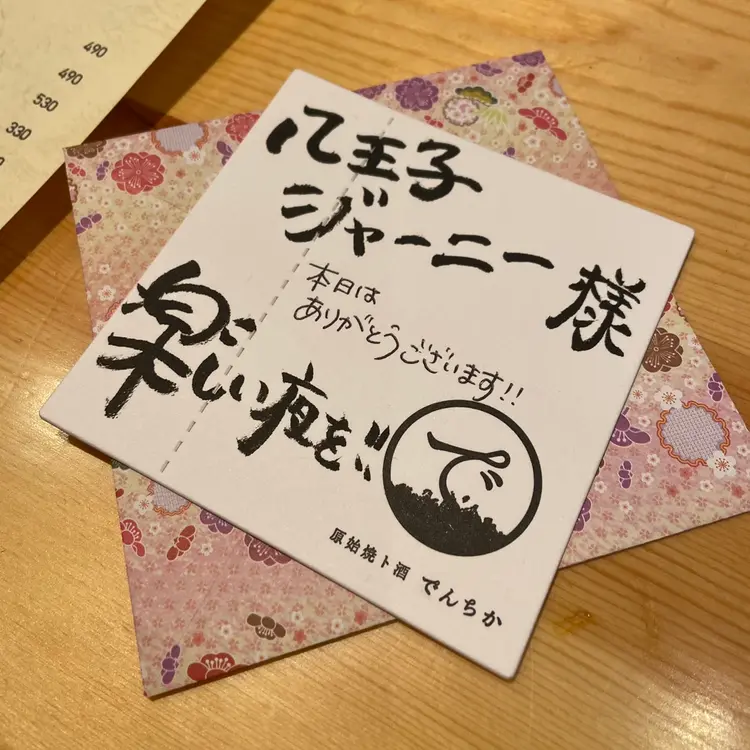 490
490
530
330
八王子
ジャーニー様
本日は
ありがとうございます!!
楽しい夜を!!
で
原始焼ト酒 でんちか